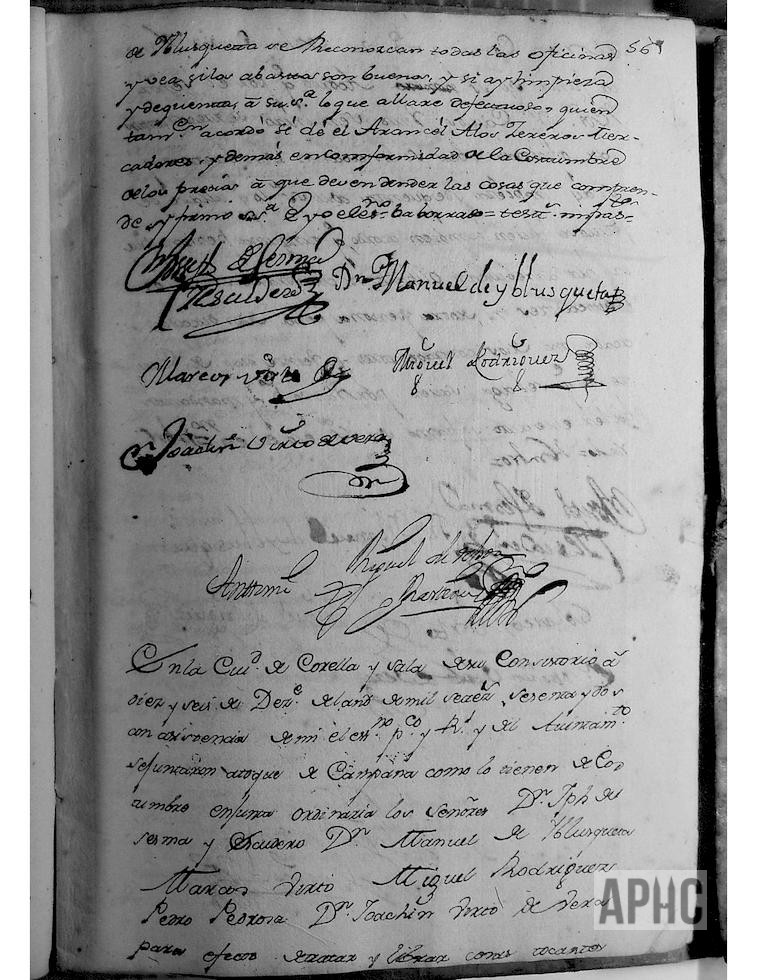 de Yblusqueta se Reconozcan todas las oficinas 56
y vea si los abastos son buenos, y si ay limpieza
y de quenta, a su s.ª lo que allare defectuoso, quien
tam.en acordó sé dé el Arancél A los Zereros Mer-
cadores, y demás en comformidad de la Costumbre
de los precios a que deven vender las cosas que compren-
de y firmó su s.ª è yo el es.no
Joseph de Sesma
y escudero
Dn. Manuel de yblusqueta
Marcos virto
Miguel Rodriguez
Dn Joachin Virto de vera
Antemi Miguel de
En la Ciu.d de Corella y sala de su Consistorio a
diez y seis de Dez.e del año de mil setez.s sesenta y dos
con asistencia de mi el es.no p.co y R.l y del Aiuntam.to
se juntaron a toque de Campana como lo tienen de Cos-
tumbre en junta ordinaria los señores Dn. Jph de
sesma y Escudero Dn Manuel de Yblusqueta
Marcos Virto Miguel Rodriguez
Pedro Pedrosa Dn. Joachin Virto de Vera
para efecto de tratar y librar cosas tocantes
APHC